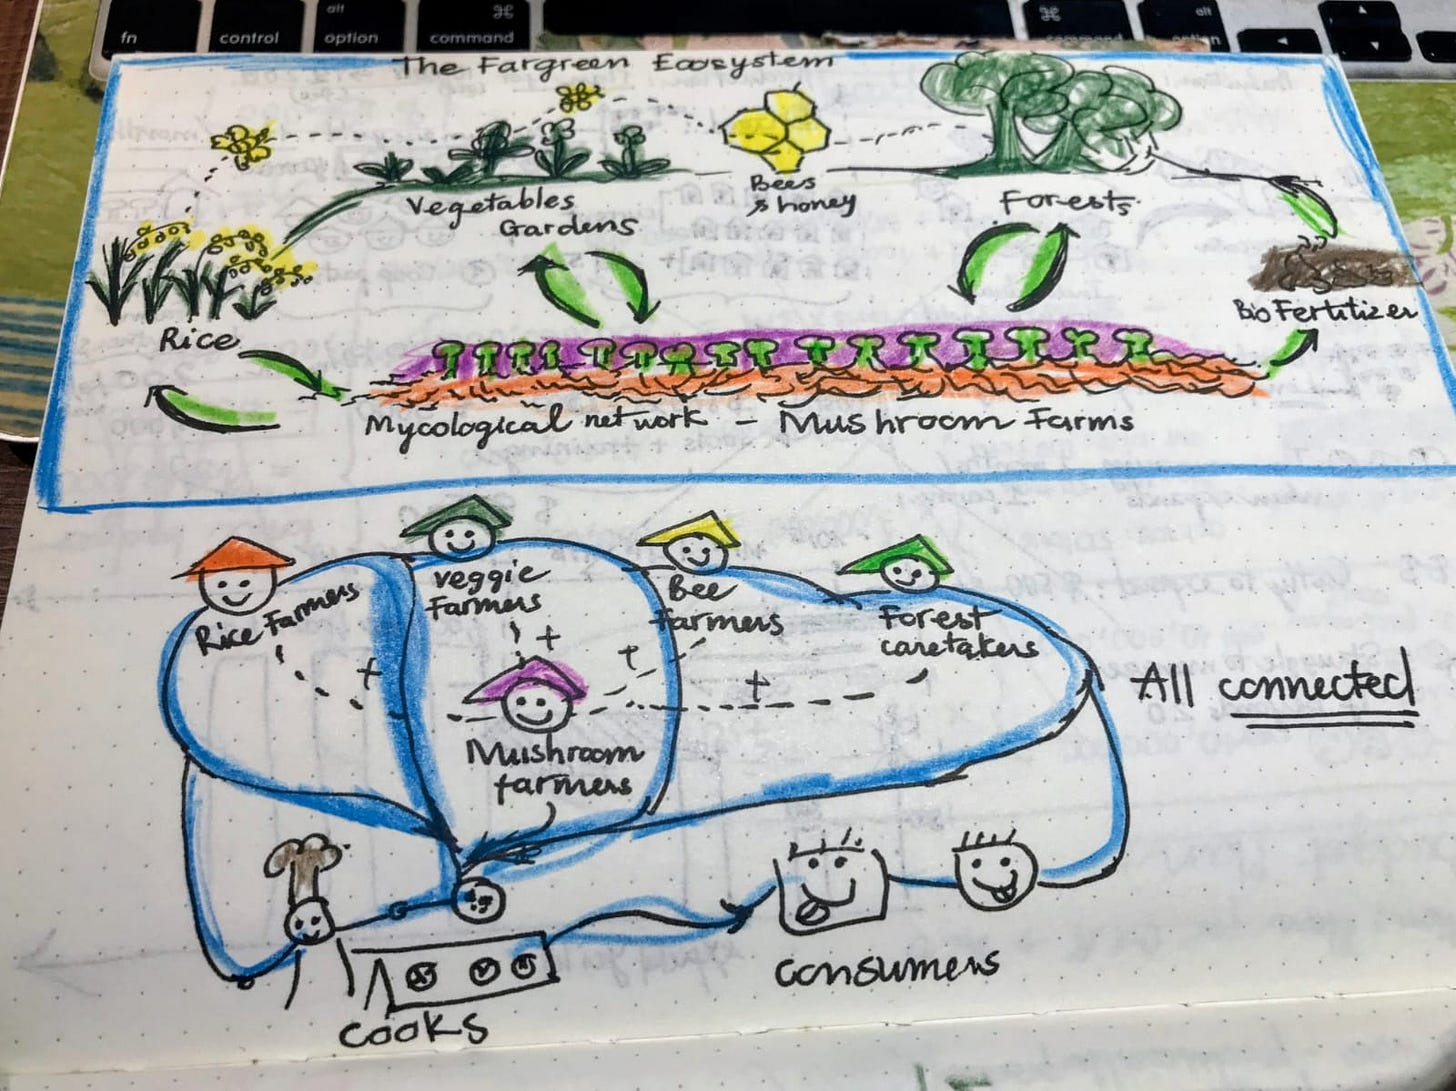 fn
control
alt
option
⌘
command
⌘
command
alt
option
The Fargreen Ecosystem
Vegetables
Gardens
Bees
& honey
Forests
Rice
Bio Fertilizer
Mycological network - Mushroom Farms
Rice Farmers
veggie
Farmers
Bee
farmers
Forest
caretakers
+
+
+
+
Mushroom
farmers
All connected
consumers
cooks